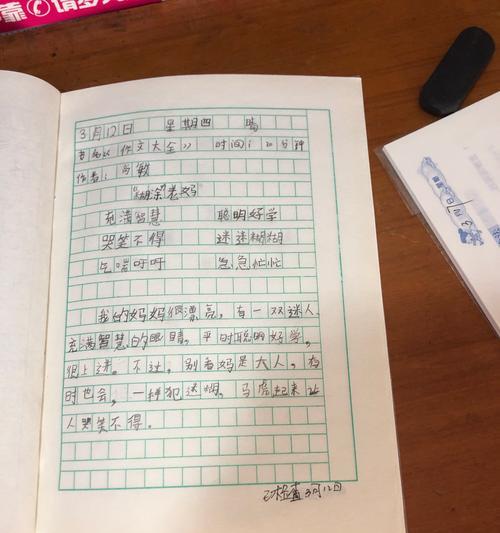 请多
3月12日 星期四 晴
书名《作文大全》 时间:20分钟
作者:冯敏
"糊涂"老妈
充满智慧 聪明好学
哭笑不得 迷迷糊糊
气喘吁吁 急急忙忙
我的妈妈很漂亮,有一双迷人、
充满智慧的眼睛。平时聪明好学,
很上进。不过,别看妈是大人,有
时也会,一样犯迷糊,马虎起来让
人哭笑不得。
已检查 3月12日